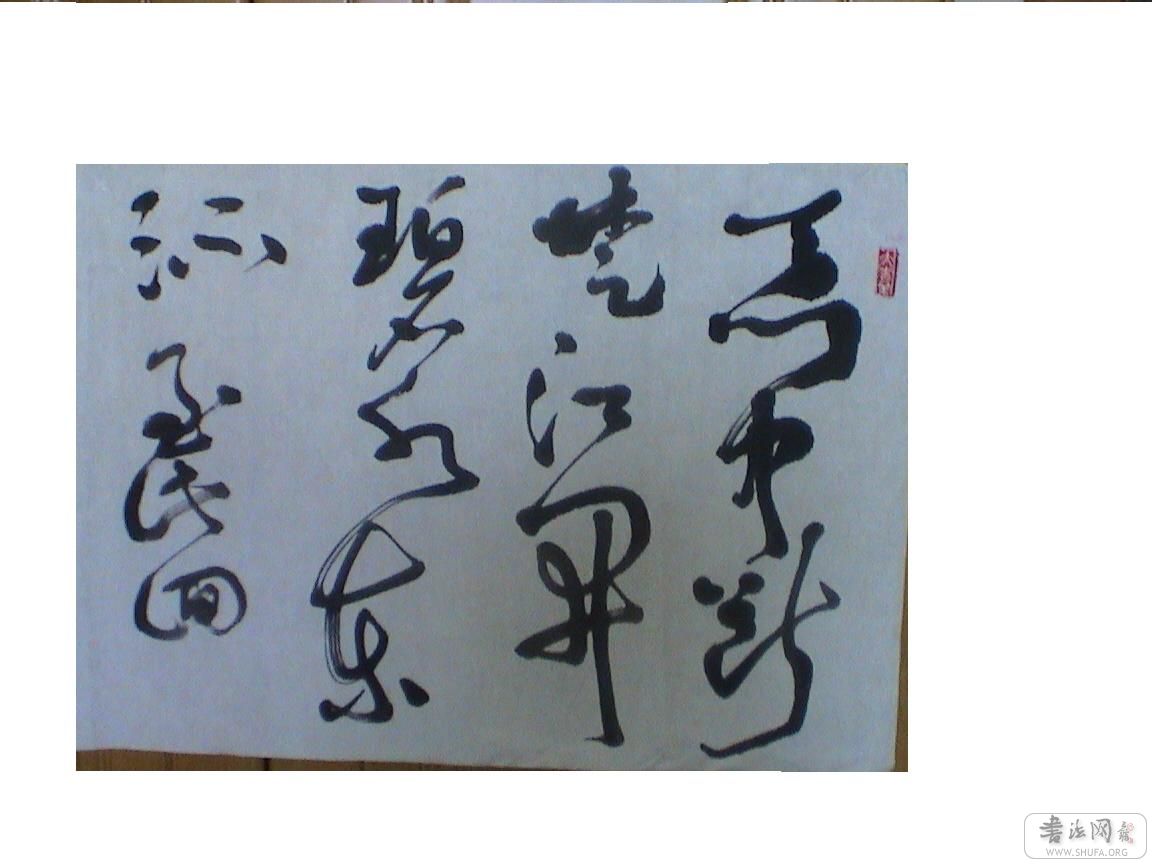 天门中断
楚江開
碧水東
流至此回
書法网
WWW.SHUFA.ORG